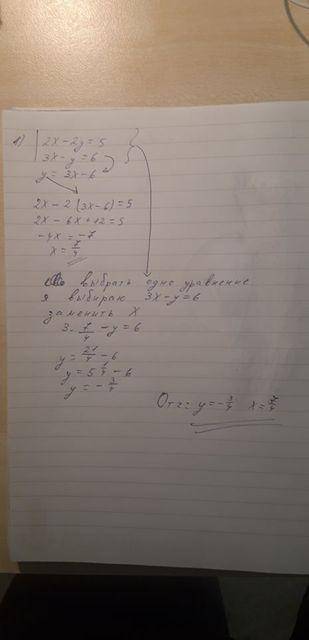 1) 2x-2y=5
3x-y=6
y=3x-6
2x-2(3x-6)=5
2x-6x+12=5
-4x=-7
x=7/4
выбрать одно уравнение
я выбираю 3x-y=6
заменить x
3·7/4-y=6
y=21/4-6
y=5 1/4-6
y=-3/4
Отв: y=-3/4 x=7/4